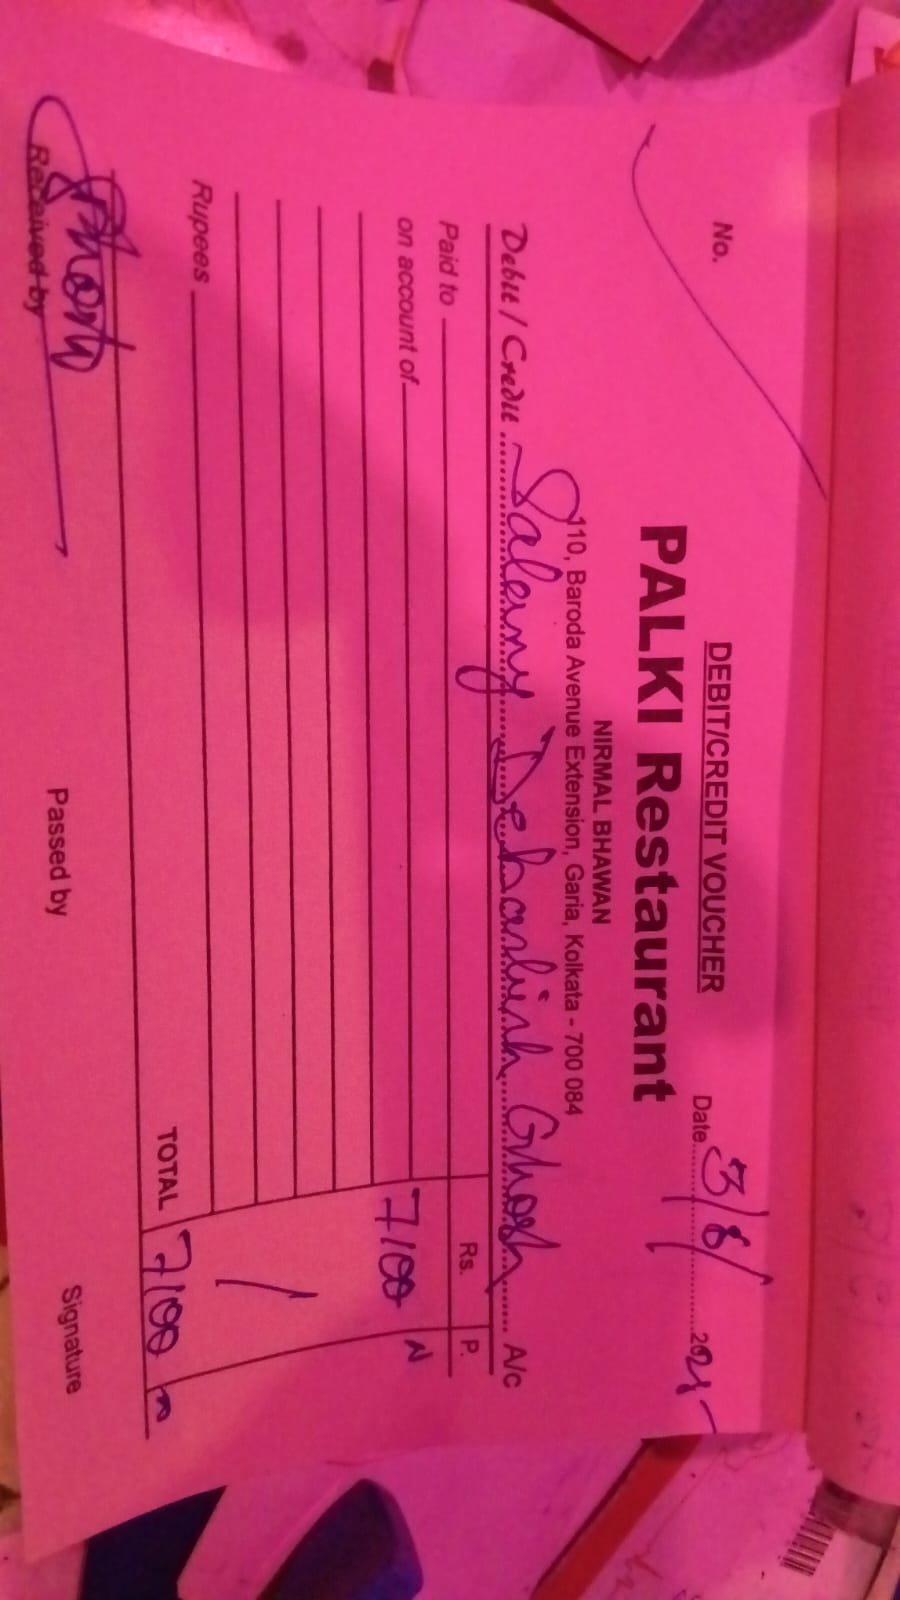 DEBIT/CREDIT VOUCHER
No. Date 3/8/ 2025
PALKI Restaurant
NIRMAL BHAWAN
110, Baroda Avenue Extension, Garia, Kolkata - 700 084
Debit / Credit Salemy Debashish Ghosh A/c
Paid to Rs. P.
on account of 7100
Rupees
TOTAL 7100
Received by Passed by Signature